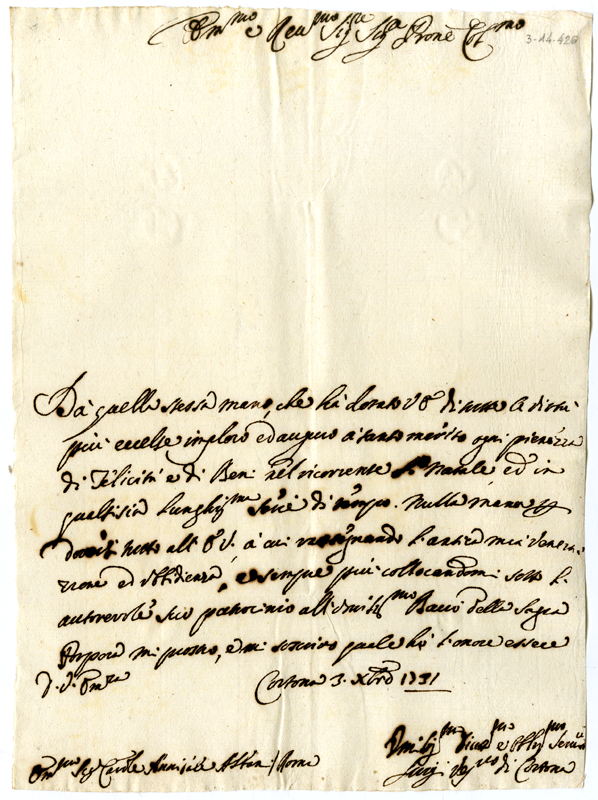 Em.mo e Rev.mo Sig.re Sig.r Prone Col.mo
3-14-426
Da quella stessa mano, che hà dotato V. E. di tutte le doti
più eccelse imploro ed auguro à tanto merito ogni pienezza
di Felicità e di Beni nel ricorrente S. Natale ed in
qualsisia lunghiss.ma serie di tempo. Nulla meno
tutto all' E. V., à cui rassegnando l'antica mia venera-
zione ed obbidienza, e sempre più collocandomi sotto l'
autorevole suo patrocinio all' umiliss.mo Bacio della Sagra
Porpora mi prostro, e mi soscrivo quale hò l'onore essere
D. V. Em.za
Cortona 3. Xbre 1731
Umiliss.mo e Obblig.mo
Luigi Ves.vo di Cortona
Em.mo Sig. Card.le Annibale Albani / Roma